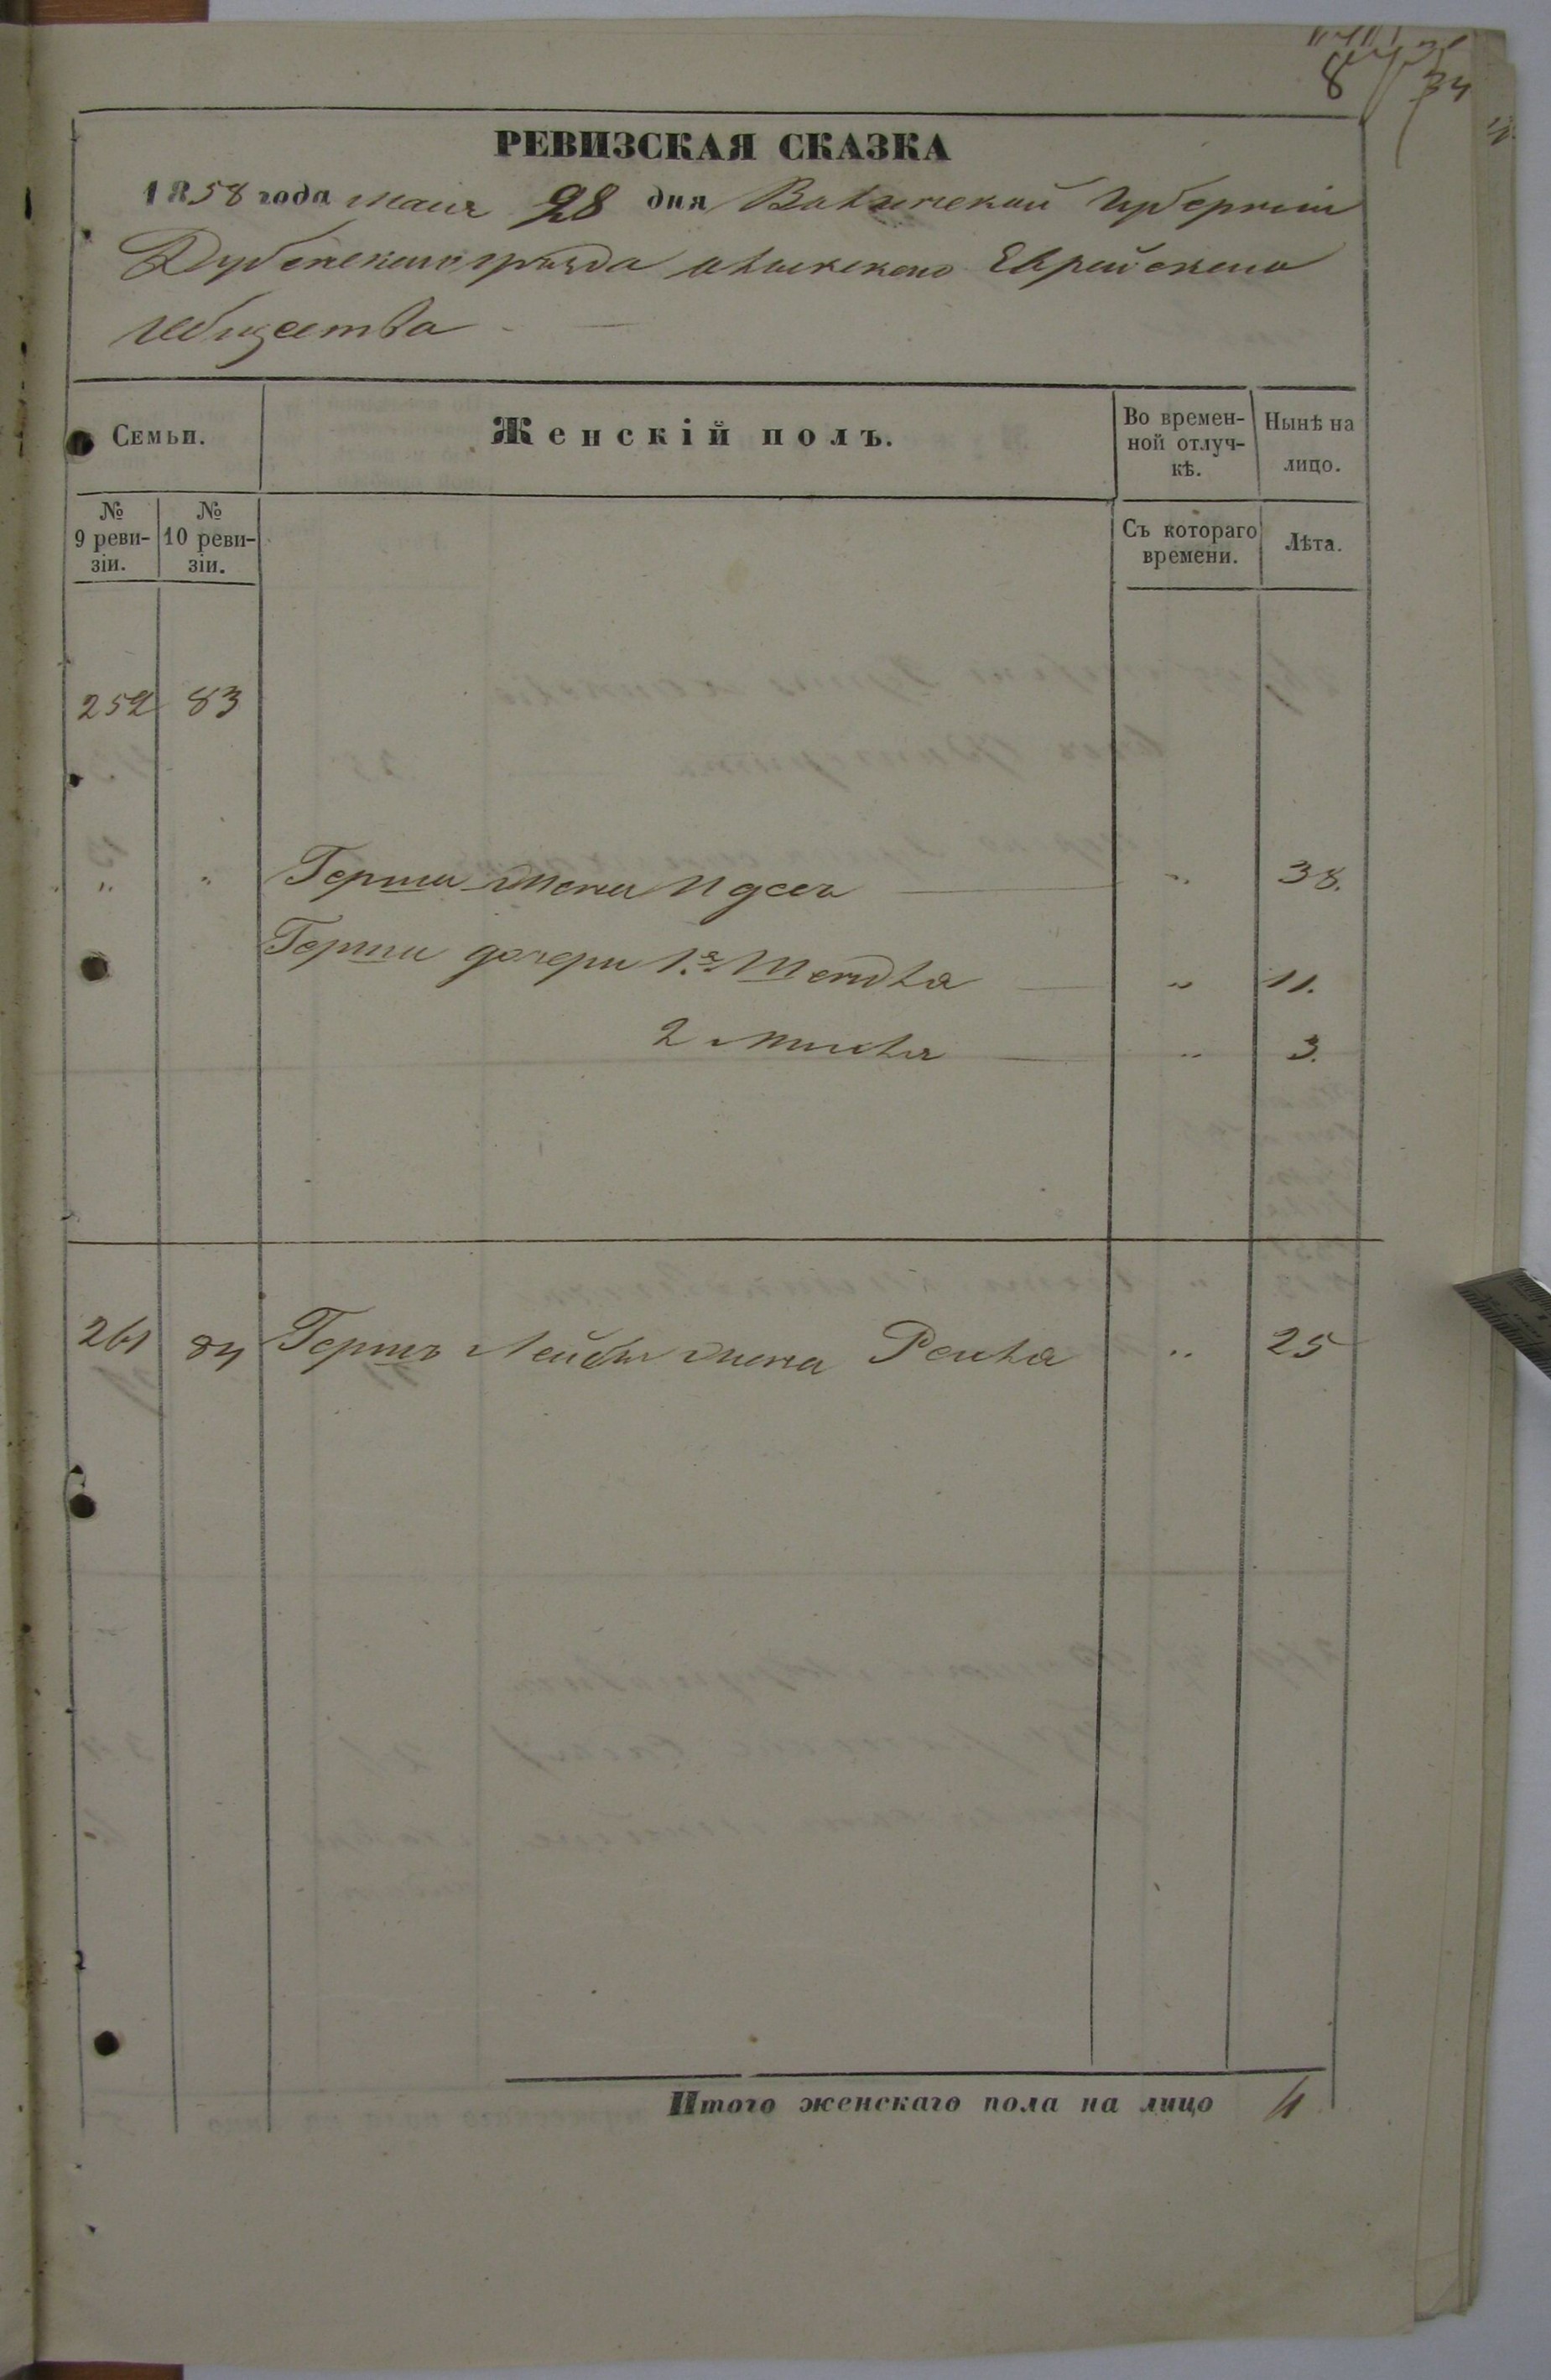 8 34
РЕВИЗСКАЯ СКАЗКА
1858 года маия 28 дня Волынской Губерніи
Дубенского уѣзда Олыкского Еврейского
Общества
Семьи. Женскій полъ. Во времен-ной отлуч-кѣ. Нынѣ на лицо.
№ 9 реви-зіи. № 10 реви-зіи. Съ котораго времени. Лѣта.
252 83
" " Герша жена Идесь " 38.
Герша дочери 1.я Шендля " 11.
2 " 3.
261 84 Гершъ Лейбы жена Рейзля " 25
Итого женскаго пола на лицо 4